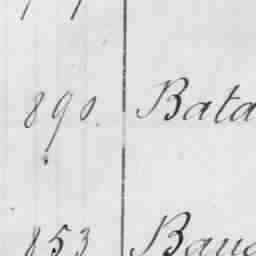 890. Bata
853 Baua